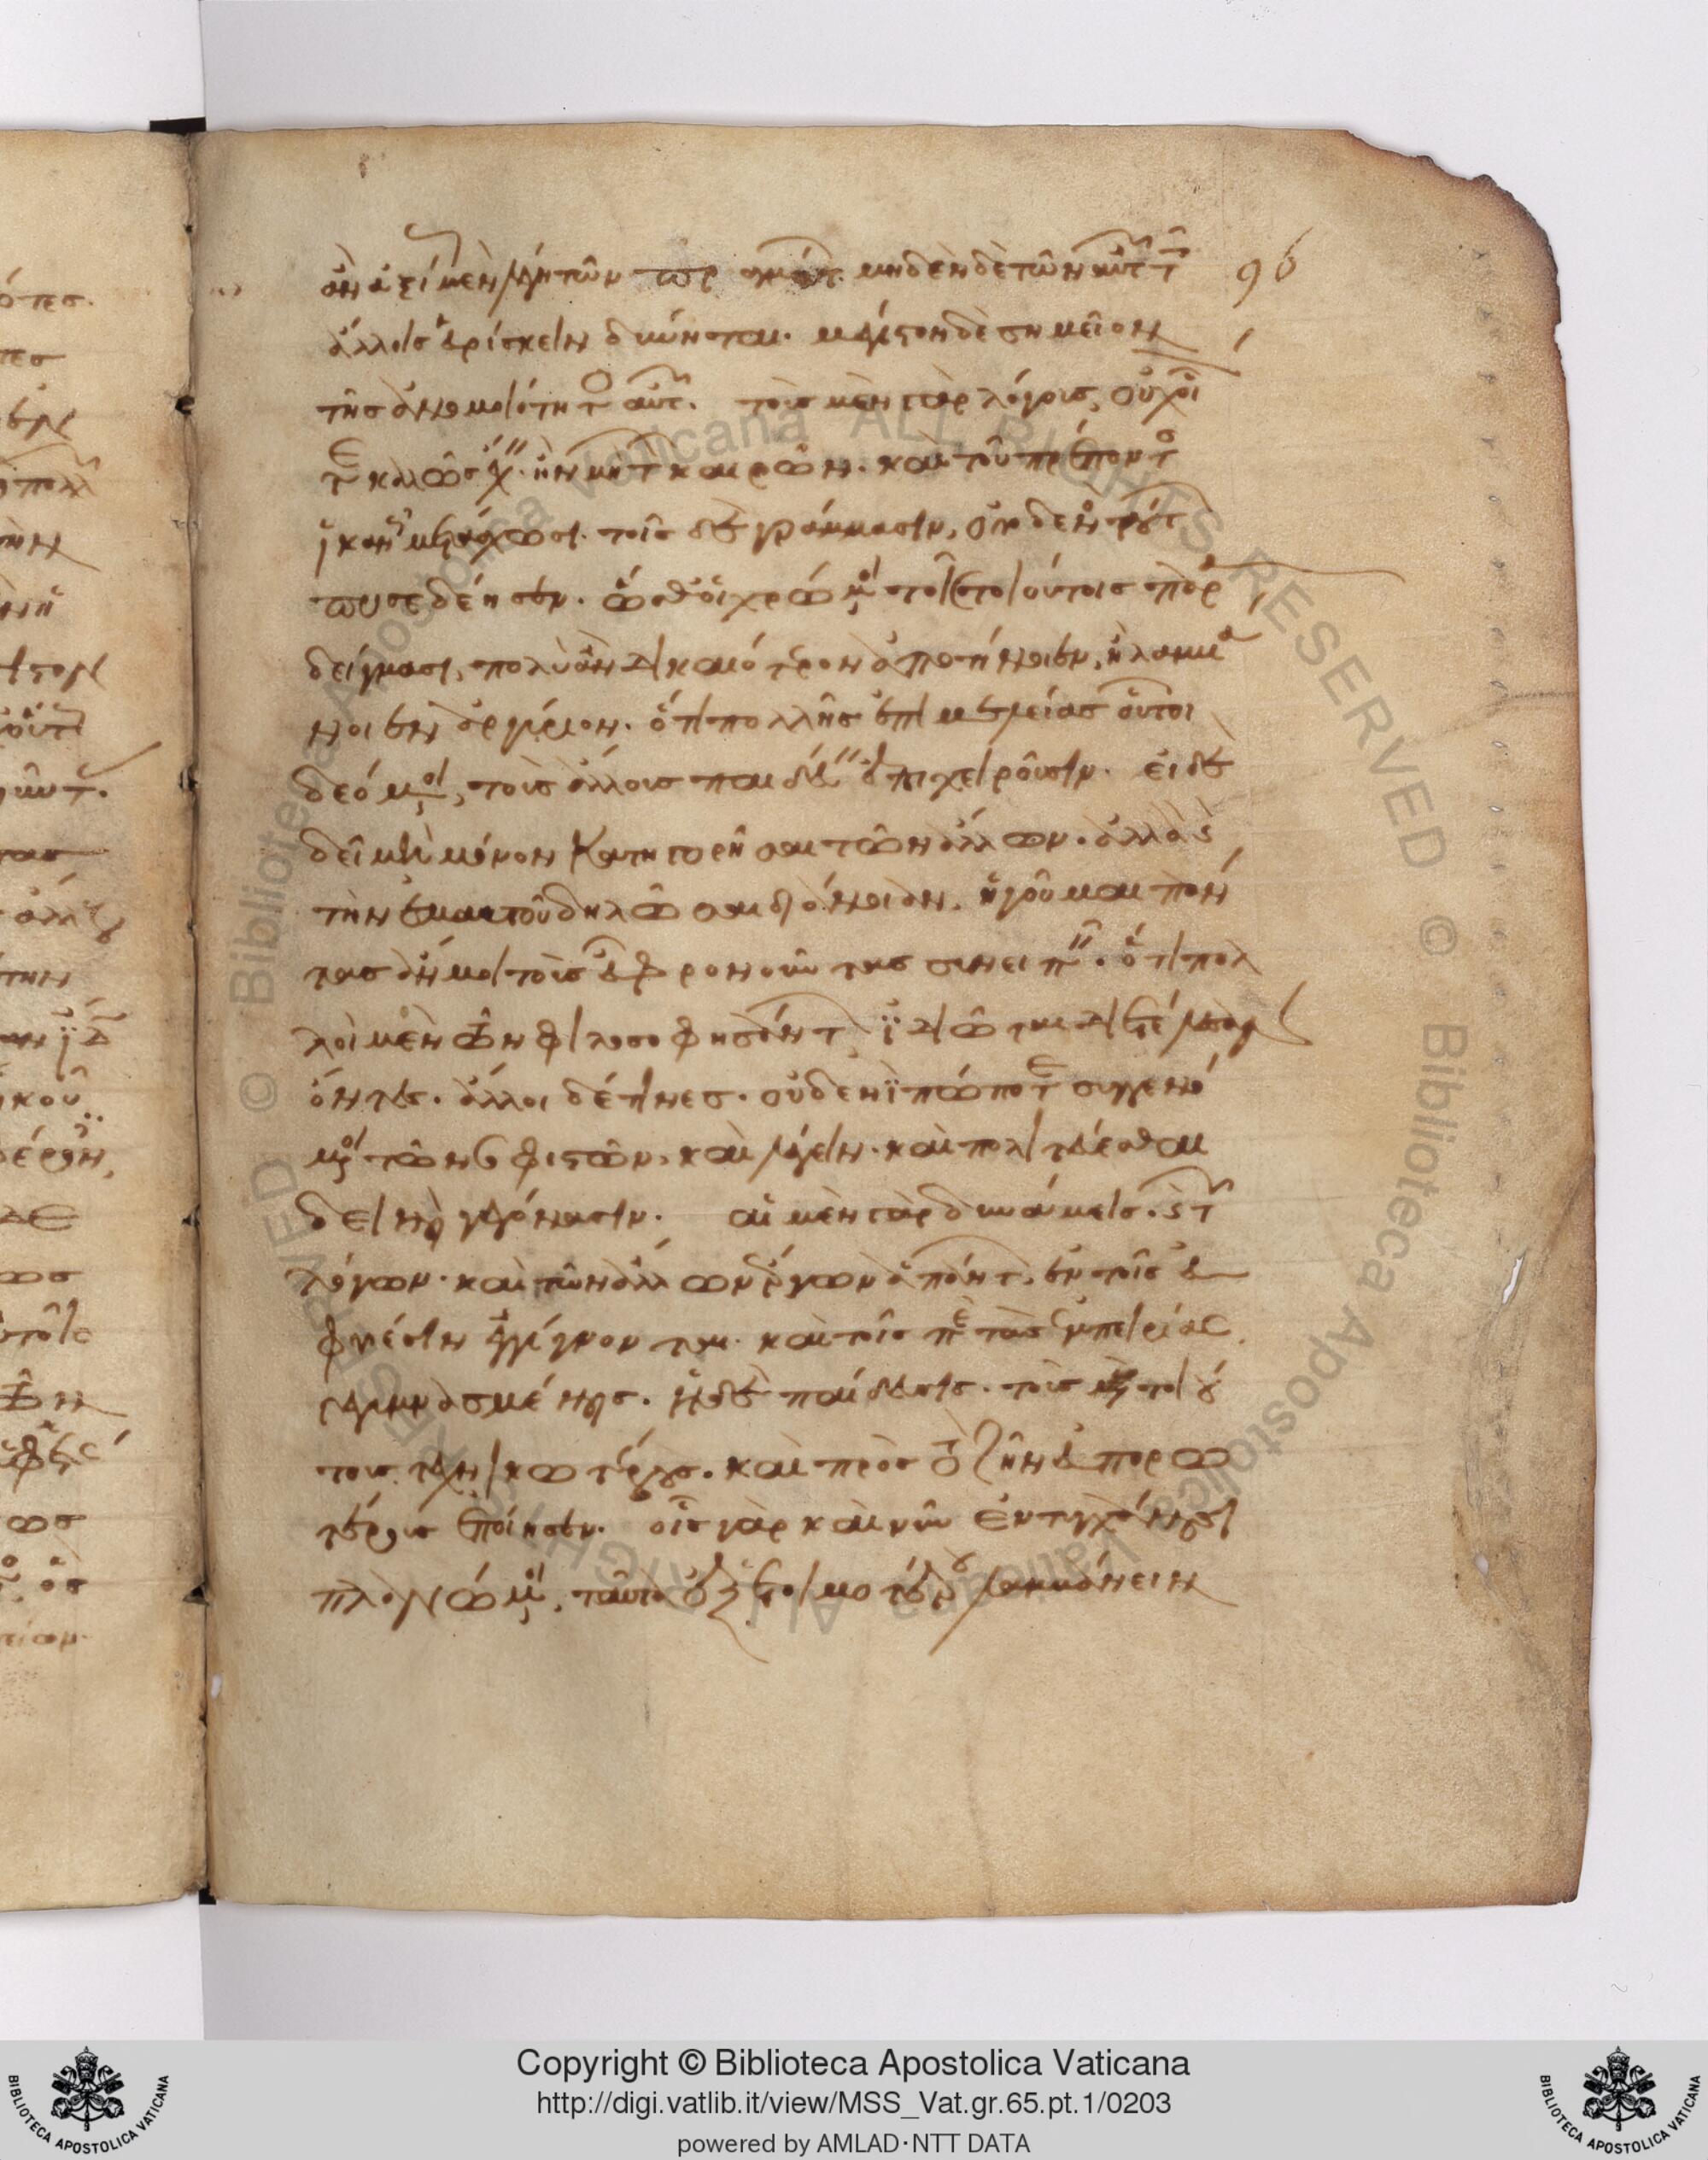 ἂν ἀξίως μὲν λέγῃ τῶν πραγμάτων. μηδὲν δὲ τῶν αὐτῶν τοῖς
ἄλλοις εὑρίσκειν δύνηται. μέγιστον δὲ σημεῖον
τῆς ἀνομοιότητος αὐτῶν. τοὺς μὲν γὰρ λόγους, οὐχ οἷόν
τε καλῶς ἔχειν. ἢν μὴ τῶν καιρῶν. καὶ τοῦ πρέποντος
ἱκανῶς μετάσχωσι. τοῖς δὲ γράμμασιν, οὐδενὸς τούτων
προσεδέησεν. ὥσθ' οἱ χρώμενοι τοῖς τοιούτοις παρα
δείγμασι, πολὺ ἂν δικαιότερον ἀποτίνοιεν, ἢ λαμβά
νοιεν ἀργύριον. ὅτι πολλῆς ἐπιμελείας αὐτοὶ
δεόμενοι, τοὺς ἄλλους παιδεύειν ἐπιχειροῦσιν. εἰ δὲ
δεῖ μὴ μόνον κατηγορῆσαι τῶν ἄλλων. ἀλλὰ καὶ
τὴν ἐμαυτοῦ δηλῶσαι διάνοιαν, ἡγοῦμαι πάν
τας ἄν μοι τοὺς εὖ φρονοῦντας συνειπεῖν. ὅτι πολ
λοὶ μὲν τῶν φιλοσοφησάντων, ἰδιῶται διετέλεσαν
ὄντες. ἄλλοι δέ τινες. οὐδενὶ πώποτε συγγενό
μενοι τῶν σοφιστῶν, καὶ λέγειν. καὶ πολιτεύεσθαι
δεινοὶ γεγόνασιν. αἱ μὲν γὰρ δυνάμεις. καὶ τῶν
λόγων. καὶ τῶν ἄλλων ἔργων ἁπάντων, ἐν τοῖς εὐ
φυέσιν ἐγγίγνονται. καὶ τοῖς περὶ τὰς ἐμπειρίας
γεγυμνασμένοις. ἡ δὲ παίδευσις. τοὺς μὲν τοιού
τους τεχνικωτέρους. καὶ πρὸς τὸ ζητεῖν εὐπορω
τέρους ἐποίησεν. οἷς γὰρ καὶ νῦν ἐντυγχάνουσι
πλανώμενοι, ταῦτα ἐξ ἑτοιμοτέρου λαμβάνειν
96
Copyright © Biblioteca Apostolica Vaticana
http://digi.vatlib.it/view/MSS_Vat.gr.65.pt.1/0203
powered by AMLAD·NTT DATA